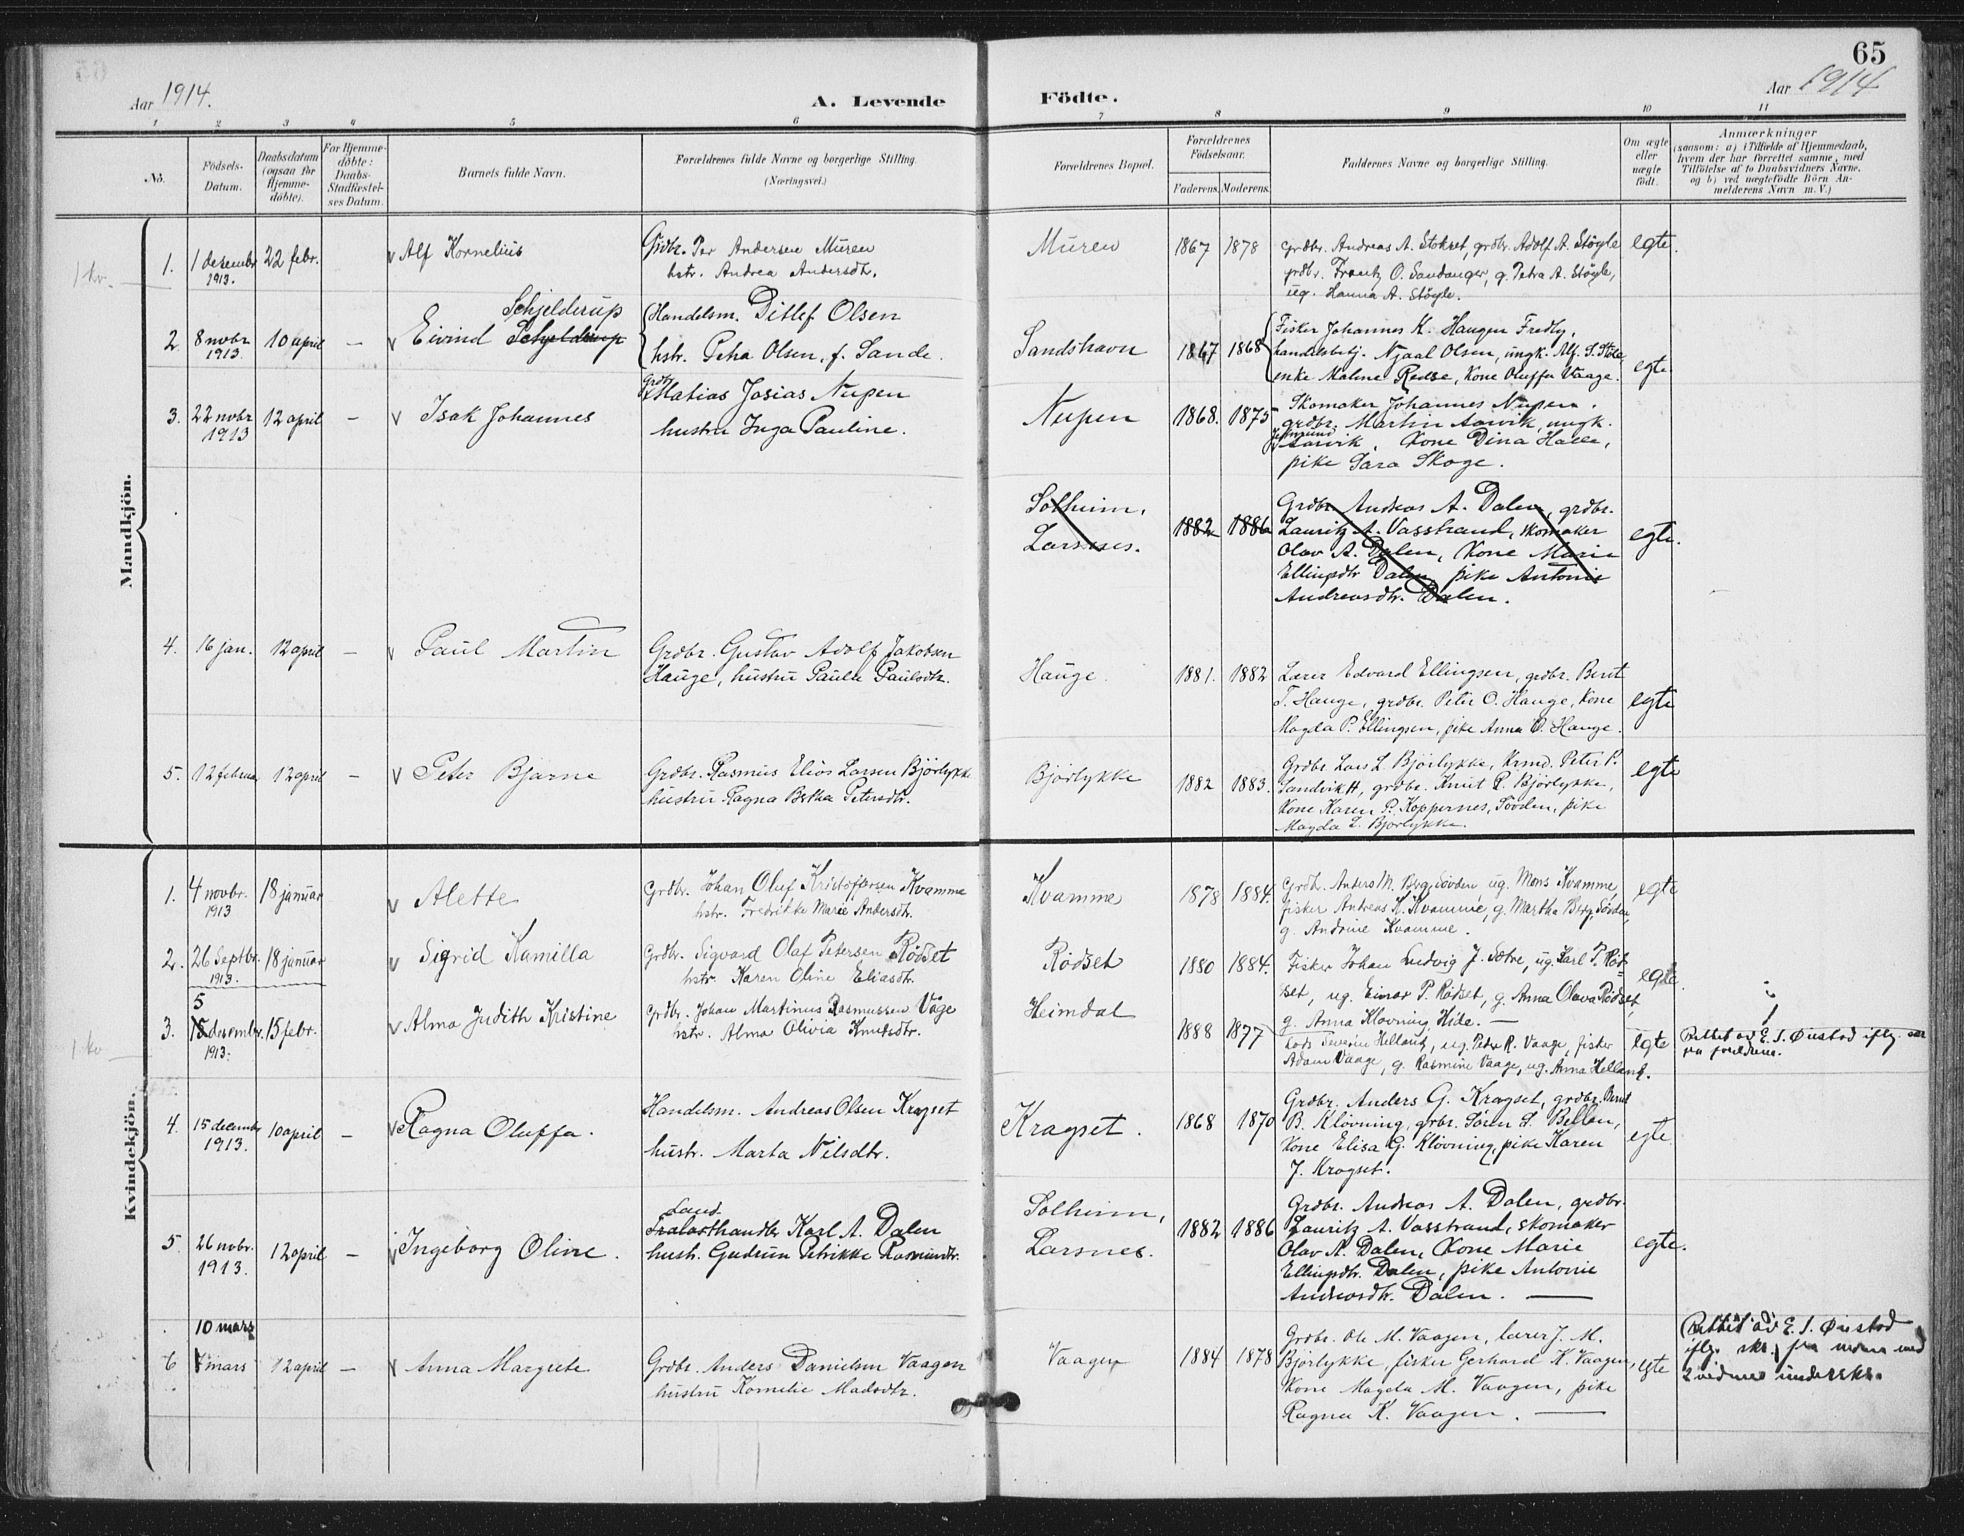 65
Aar 1914.
A. Levende Födte.
Aar 1914
1 2 3 4 5 6 7 8 9 10 11
No.
Födsels-
Datum.
Daabsdatum
(ogsaa for
Hjemme-
döbte).
For Hjemme-
döbte:
Daabs-
Stadfæstel-
ses Datum.
Barnets fulde Navn.
Forældrenes fulde Navne og borgerlige Stilling.
(Næringsvei.)
Forældrenes Bopæl.
Forældrenes
Födselsaar.
Faderens. Moderens.
Faddernes Navne og borgerlige Stilling.
Om ægte
eller
uægte
födt.
Anmærkninger
(saasom: a) i Tilfælde af Hjemmedaab,
hvem der har forrettet samme, med
Tilföielse af to Daabsvidners Navne.
og b) ved uægtefödte Börn An-
melderens Navn m. V.)
Mandkjön.
1 kv.
1. 1 desembr 1913. 22 febr. Alf Kornelius
Grdbr. Per Andersen Muren
hstr. Andrea Andersdtr.
Muren 1867 1878
grdbr. Andreas A. Stokset, grdbr. Adolf A. Støyle
grdbr. Frantz O. Sandanger, g. Petra A. Støyle,
ug. Hanna A. Støyle.
egte.
2 8 novbr 1913. 10 april — Eivind Schjelderup
Schjelderup
{Handelsm. Ditlef Olsen
hstr. Petra Olsen, f. Sande.
Sandshavn 1867 1868
Fisker Johannes K. Haugen Fredly,
handelsbetj. Njaal Olsen, ungk. Alf. S.
enke Malene Redse, Kone Oluffa Vaage.
egte
3. 22 novbr 1913 12 april — Isak Johannes
Grdbr. Matias Josias Nupen
hustru Inga Pauline.
Nupen 1868. 1875
Skomaker Johannes Nupen,
grdbr. Martin Aarvik, ungk.
Aarvik, Kone Dina Halle,
pike Sara Skoge.
Solheim,
Larsnes.
1882 1886
Grdbr. Andreas A. Dalen, grdbr.
Lauritz A. Vasstrand, skomaker
Olav A. Dalen, Kone Marie
Ellingsdtr Dalen, pike Antonie
Andreasdtr. Dalen.
egte.
4. 16 jan. 12 april — Paul Martin
Grdbr. Gustav Adolf Jakobsen
Hauge, hustru Paula Paulsdtr.
Hauge. 1881. 1882
Lærer Edvard Ellingsen, grdbr. Bernt
T. Hauge, grdbr. Peter O. Hauge, Kone
Magda P. Ellingsen, pike Anna O. Hauge.
egte
5. 12 februar 12 april — Peter Bjarne
Grdbr. Rasmus Elias Larsen Bjørlykke
hustru Ragna Betha Petersdtr.
Bjørlykke 1882 1883.
Grdbr. Lars L Bjørlykke, Krmd. Peter P.
Sandvik, grdbr. Knut R. Bjørlykke,
Kone Karen P. Koppernes, Søvden, pike
Magda L. Bjørlykke.
egte
Kvindekjön.
1. 4 novbr. 1913 18 januar Alette
Grdbr. Johan Oluf Kristofersen Kvamme
hstr. Fredrikke Marie Andersdtr.
Kvamme 1878 1884.
Grdbr. Anders M. Berg, Søvden ug. Mons Kvamme,
fisker Andreas K. Kvamme, g. Martha Berg, Søvden,
g. Andrine Kvamme.
egte
2. 26 septbr. 1913. 18 januar Sigrid Kamilla
Grdbr. Sigvard Olaf Petersen Rødset
hstr. Karen Oline Eliasdtr.
Rødset 1880 1884.
Fisker Johan Ludvig J. Sætre, ug. Karl P. Rød-
set, ug. Einar P. Rødset, g. Anna Olava Rødset,
g. Anna Kløvning, Hide. —
egte
1 kv
5
3. 15 desember 1913. 15 febr. Alma Judith Kristine
grdbr. Johan Martinus Rasmussen Våge
hstr. Alma Olivia Knutsdtr.
Heimdal 1888 1877
Lods Severin Helland, ug. Peder R. Vaage, fisker
Adam Vaage, g. Rasmine Vaage, ug. Anna Helland.
egte
Rettet av E. S. Ørstad iflg.
fra foreldrene.
4. 15 decembr 1913. 10 april — Ragna Oluffa.
Handelsm. Andreas Olsen Kragset
hustr. Marta Nilsdtr.
Kragset. 1868 1870
Grdbr. Anders G. Kragset, grdbr. Bernt
B. Kløvning, grbr. Søren S. Bellen,
Kone Elisa G. Kløvning, pike Karen
J. Kragset.
egte.
5. 26 novbr. 1913. 12 april — Ingeborg Oline.
Land-
Tralasthandler Karl A. Dalen
hustr. Gudrun Petrikke Rasmusdtr.
Solheim,
Larsnes.
1882 1886
Grdbr. Andreas A. Dalen, grdbr.
Lauritz A. Vasstrand, skomaker
Olav A. Dalen, Kone Marie
Ellingsdtr. Dalen, pike Antonie
Andreasdtr. Dalen. —
egte.
10 mars
6 mars 12 april — Anna Margrete
Grdbr. Anders Danielsen Vaagen
hustru Kornelie Madsdtr.
Vaagen 1884 1878
Grdbr. Ole M. Vaagen, lærer J. M.
Bjørlykke, fisker Gerhard K. Vaagen,
Kone Magda M. Vaagen, pike
Ragna K. Vaagen. —
egte
Rettet av E. S. Ørstad
iflg. skr. fra moren med
2 vidners undersks.